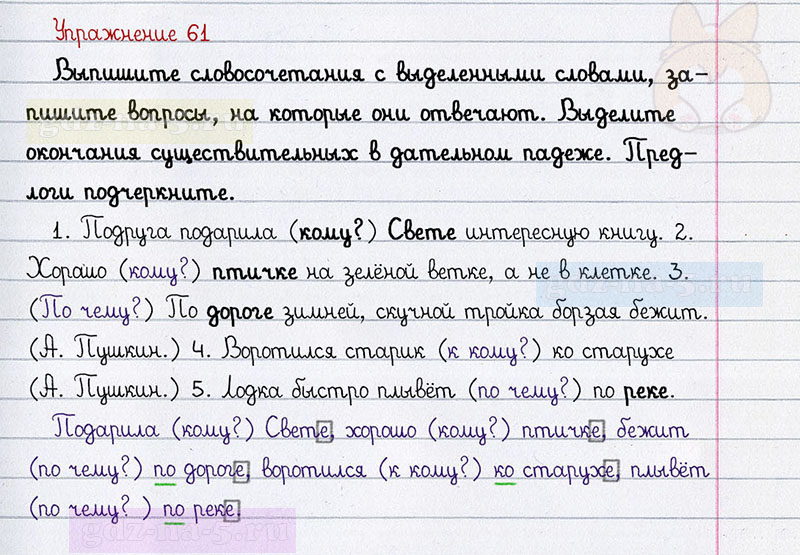 Упражнение 61
Выпишите словосочетания с выделенными словами, за-
пишите вопросы, на которые они отвечают. Выделите
окончания существительных в дательном падеже. Пред-
логи подчеркните.
1. Подруга подарила (кому?) Свете интересную книгу. 2.
Хорошо (кому?) птичке на зелёной ветке, а не в клетке. 3.
(По чему?) По дороге зимней, скучной тройка борзая бежит.
(А. Пушкин.) 4. Воротился старик (к кому?) ко старухе
(А. Пушкин.) 5. Лодка быстро плывёт (по чему?) по реке.
Подарила (кому?) Свете, хорошо (кому?) птичке, бежит
(по чему?) по дороге, воротился (к кому?) ко старухе, плывёт
(по чему? ) по реке.
gdz-na-5.ru
gdz-na-5.ru
gdz-na-5.ru